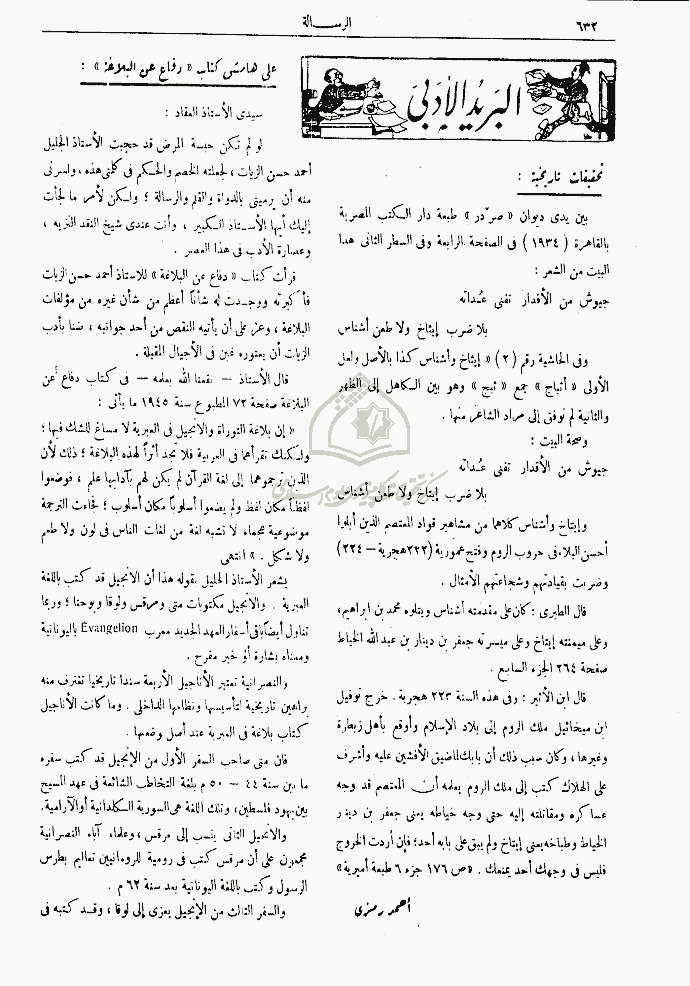 ٦٣٢
الرسـالة
البريد الأدبى
تحقيقات تاريخية :
بين يدى ديوان « صرّدر » طبعة دار الكتب المصرية
بالقاهرة ( ١٩٣٤ ) فى الصفحة الرابعة وفى السطر الثانى هذا
البيت من الشعر :
جيوش من الأقدار تفنى عُداته
بلا ضرب إيتاخ ولا طعن أشناس
وفى الحاشية رقم (٢) « إيتاخ وأشناس كذا بالأصل ولعل
الأولى « أثباج » جمع « ثبج » وهو بين الكاهل إلى الظهر
والثانية لم نوفق إلى مراد الشاعر منها .
وصحة البيت :
جيوش من الأقدار تفنى عُداته
بلا ضرب إيتاخ ولا طعن أشناس
وإيتاخ وأشناس كلاهما من مشاهير قواد المعتصم الذين أبلوا
أحسن البلاء فى حروب الروم وفتح عمورية (٢٢٣هجرية – ٢٢٤)
وضربت بقيادتهم وشجاعتهم الأمثال .
قال الطبرى : كان على مقدمته أشناس ويتلوه محمد بن ابراهيم،
وعلى ميمنته إيتاخ وعلى ميسرته جعفر بن دينار بن عبد الله الخياط
صفحة ٢٦٤ الجزء السابع .
قال ابن الأثير : وفى هذه السنة ٢٢٣ هجرية . خرج توفيل
ابن ميخائيل ملك الروم إلى بلاد الإسلام وأوقع بأهل زبطرة
وغيرها ، وكان سبب ذلك أن بابك لما ضيق الأفشين عليه وأشرف
على الهلاك كتب إلى ملك الروم يعلمه أن المعتصم قد وجه
عساكره ومقاتلته إليه حتى وجه خياطه يعنى جعفر بن دينر
الخياط وطباخه يعنى إيتاخ ولم يبق على بابه أحد؛ فإن أردت الخروج
فليس فى وجهك أحد يمنعك . «ص ١٧٦ جزء ٦ طبعة أميرية»
أحمد رمزى
على هامش كتاب « دفاع عن البلاغة » :
سيدى الأستاذ العقاد :
لو لم تكن حبسة المرض قد حجبت الأستاذ الجليل
أحمد حسن الزيات ، لجعلته الخصم والحكم فى كلمتى هذه ، ولسرنى
منه أن يرمينى بالدواة والقلم والرسالة ؛ ولكن لأمر ما لجأت
إليك أيها الأستاذ الكبير ، وأنت عندى شيخ النقد النزيه ،
وعصارة الأدب فى هذا العصر .
قرأت كتاب « دفاع عن البلاغة » للاستاذ أحمد حسن الزيات
فأكبرته ووجدت له شأناً أعظم من شأن غيره من مؤلفات
البلاغة ، وعز على أن يأتيه النقص من أحد جوانبه ، ضنا بأدب
الزيات أن يعتوره غبن فى الأجيال المقبلة .
قال الأستاذ – نفعنا الله بعلمه – فى كتاب دفاع عن
البلاغة صفحة ٧٢ المطبوع سنة ١٩٤٥ ما يأتى :
« إن بلاغة التوراة والانجيل فى العبرية لا مساغ للشك فيها ؛
ولكنك تقرأهما فى العربية فلا تجد أثراً لهذه البلاغة ؛ ذلك لأن
الذين ترجموهما إلى لغة القرآن لم يكن لهم بآدابها علم ، فوضعوا
لفظاً مكان لفظ ولم يضعوا أسلوباً مكان أسلوب ؛ فجاءت الترجمة
موضوعية عجماء لا تشبه لغة من لغات الناس فى لون ولا طعم
ولا شكل . » انتهى
يشعر الأستاذ الجليل بقوله هذا أن الانجيل قد كتب باللغة
العبرية . والانجيل مكتوبات متى ومرقس ولوقا ويوحنا ؛ وربما
تناول أيضاً باقى أسفار العهد الجديد معرب Évangelion باليونانية
ومعناه بشارة أو خبر مفرح .
والنصرانية تعتبر الأناجيل الأربعة سندا تاريخيا تغترف منه
براهين تاريخية لتأسيسها ونظامها الداخلى . وما كانت الأناجيل
كتاب بلاغة فى العبرية عند أصل وضعها .
فان متى صاحب السفر الأول من الإنجيل قد كتب سفره
ما بين سنة ٤٤ – ٥٠ م بلغة التخاطب الشائعة فى عهد المسيح
بين يهود فلسطين، وتلك اللغة هى السورية الكلدانية أو الآرامية.
والانجيل الثانى ينسب إلى مرقس ، وعلماء آباء النصرانية
مجمعون على أن مرقس كتب فى رومية للرومانيين تعاليم بطرس
الرسول وكتب باللغة اليونانية بعد سنة ٦٢ م .
والسفر الثالث من الإنجيل يعزى إلى لوقا ، وقد كتبه فى